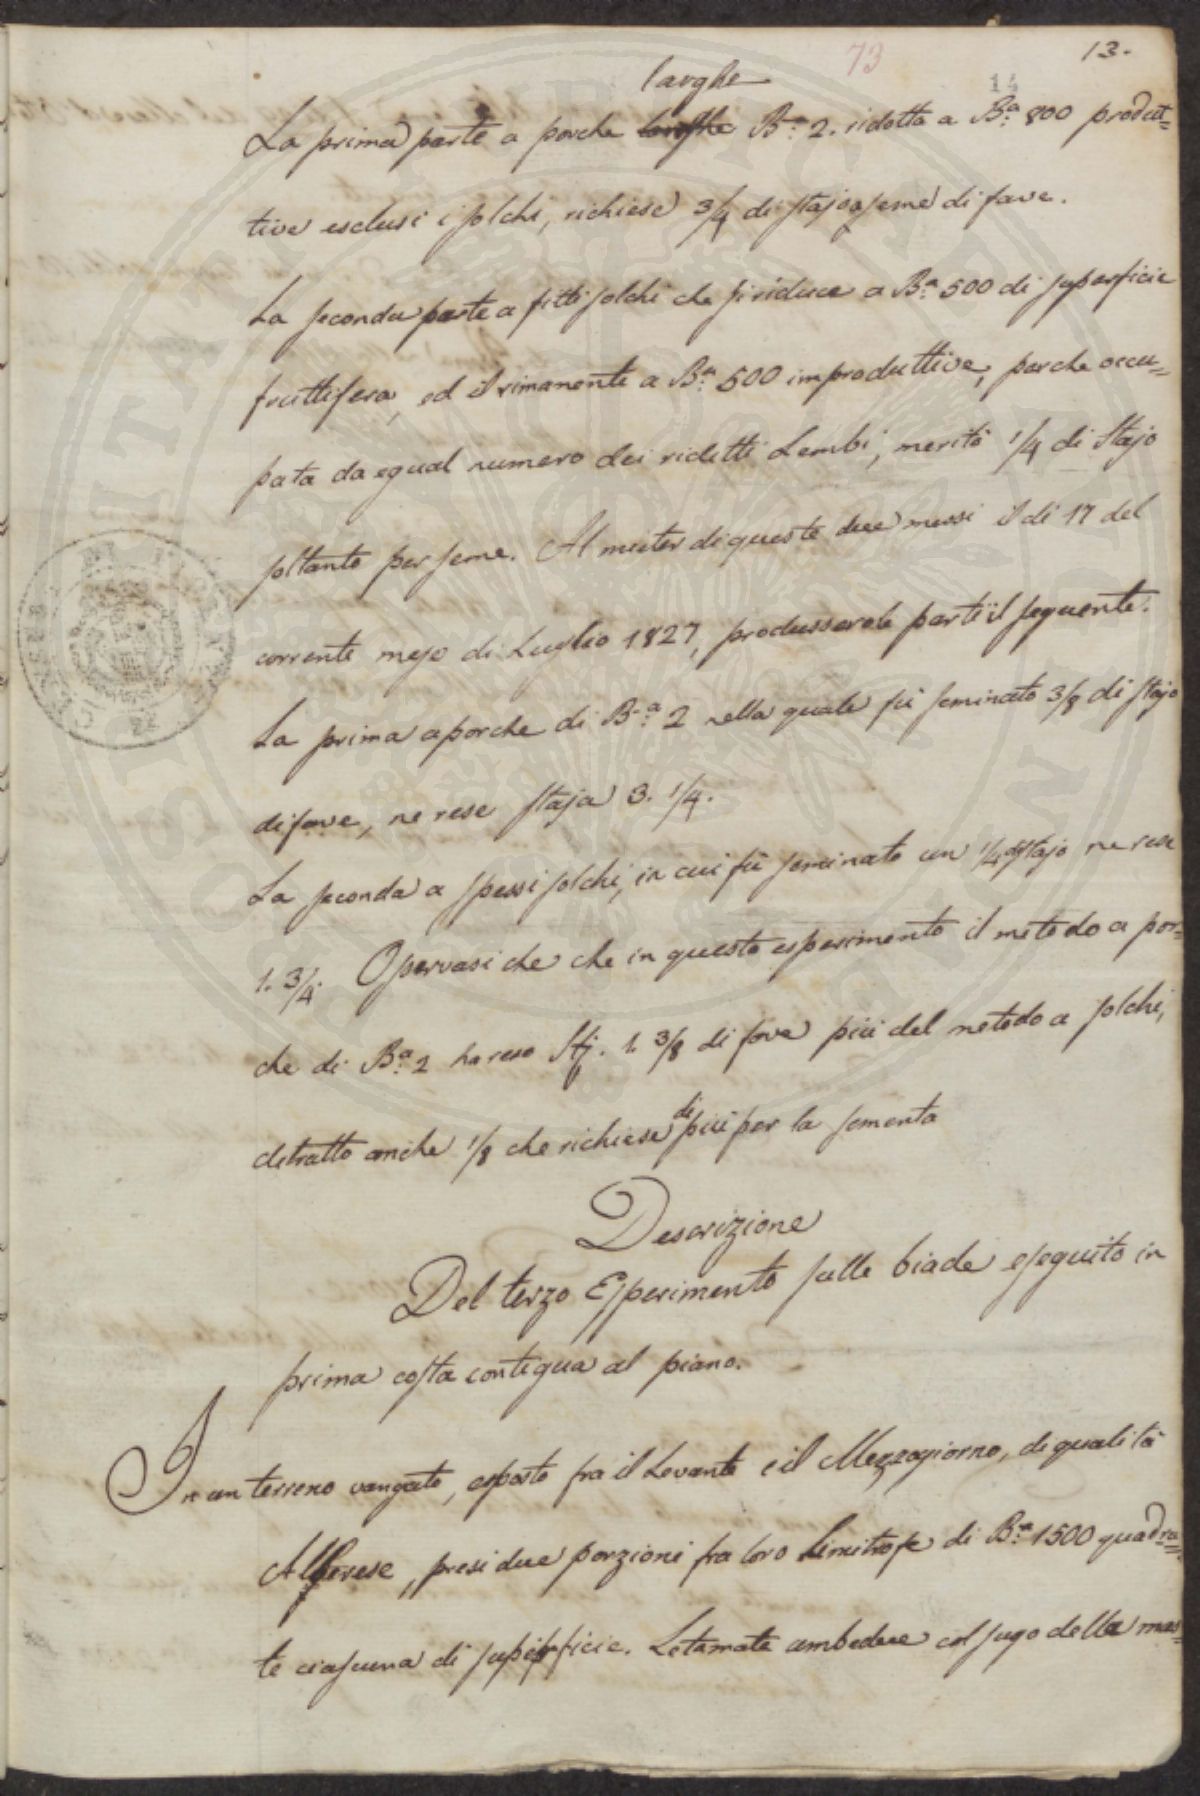 73
13.
14
larghe
La prima parte a porche larghe Bª. 2. ridotta a Bª. 800 produt=
tive esclusi i solchi, richiese 3/4 di stajo a seme di fave.
La seconda parte a fitti solchi che si riduce a Bª. 500 di superficie
fruttifera, ed il rimanente a Bª. 500 improduttive, perche occu=
pata da egual numero dei ridetti Lembi, meritò 1/4 di Stajo
soltanto per seme. Al mieter di queste due messi il di 17 del
corrente mese di Luglio 1827, produssero le parti il seguente.
La prima a porche di Bª. 2 nella quale fù seminato 3/8 di stajo
di fave, ne rese staja 3. 1/4.
La seconda a spessi solchi, in cui fù seminato un 1/4 di stajo ne rese
1. 3/4. Osservasi che che in questo esperimento il metodo a por=
che di Bª. 2 ha reso Stj. 1. 3/8 di fave più del metodo a solchi,
detratto anche 1/8 che richiese di più per la sementa
Descrizione
Del terzo Esperimento sulle biade eseguito in
prima costa contigua al piano.
In un terreno vangato, esposto fra il Levante e il Mezzogiorno, di qualità
Alberese, presi due porzioni fra loro limitrofe di Bª. 1500 quadra=
te ciascuna di superficie. Letamate ambedue col sugo della mas=